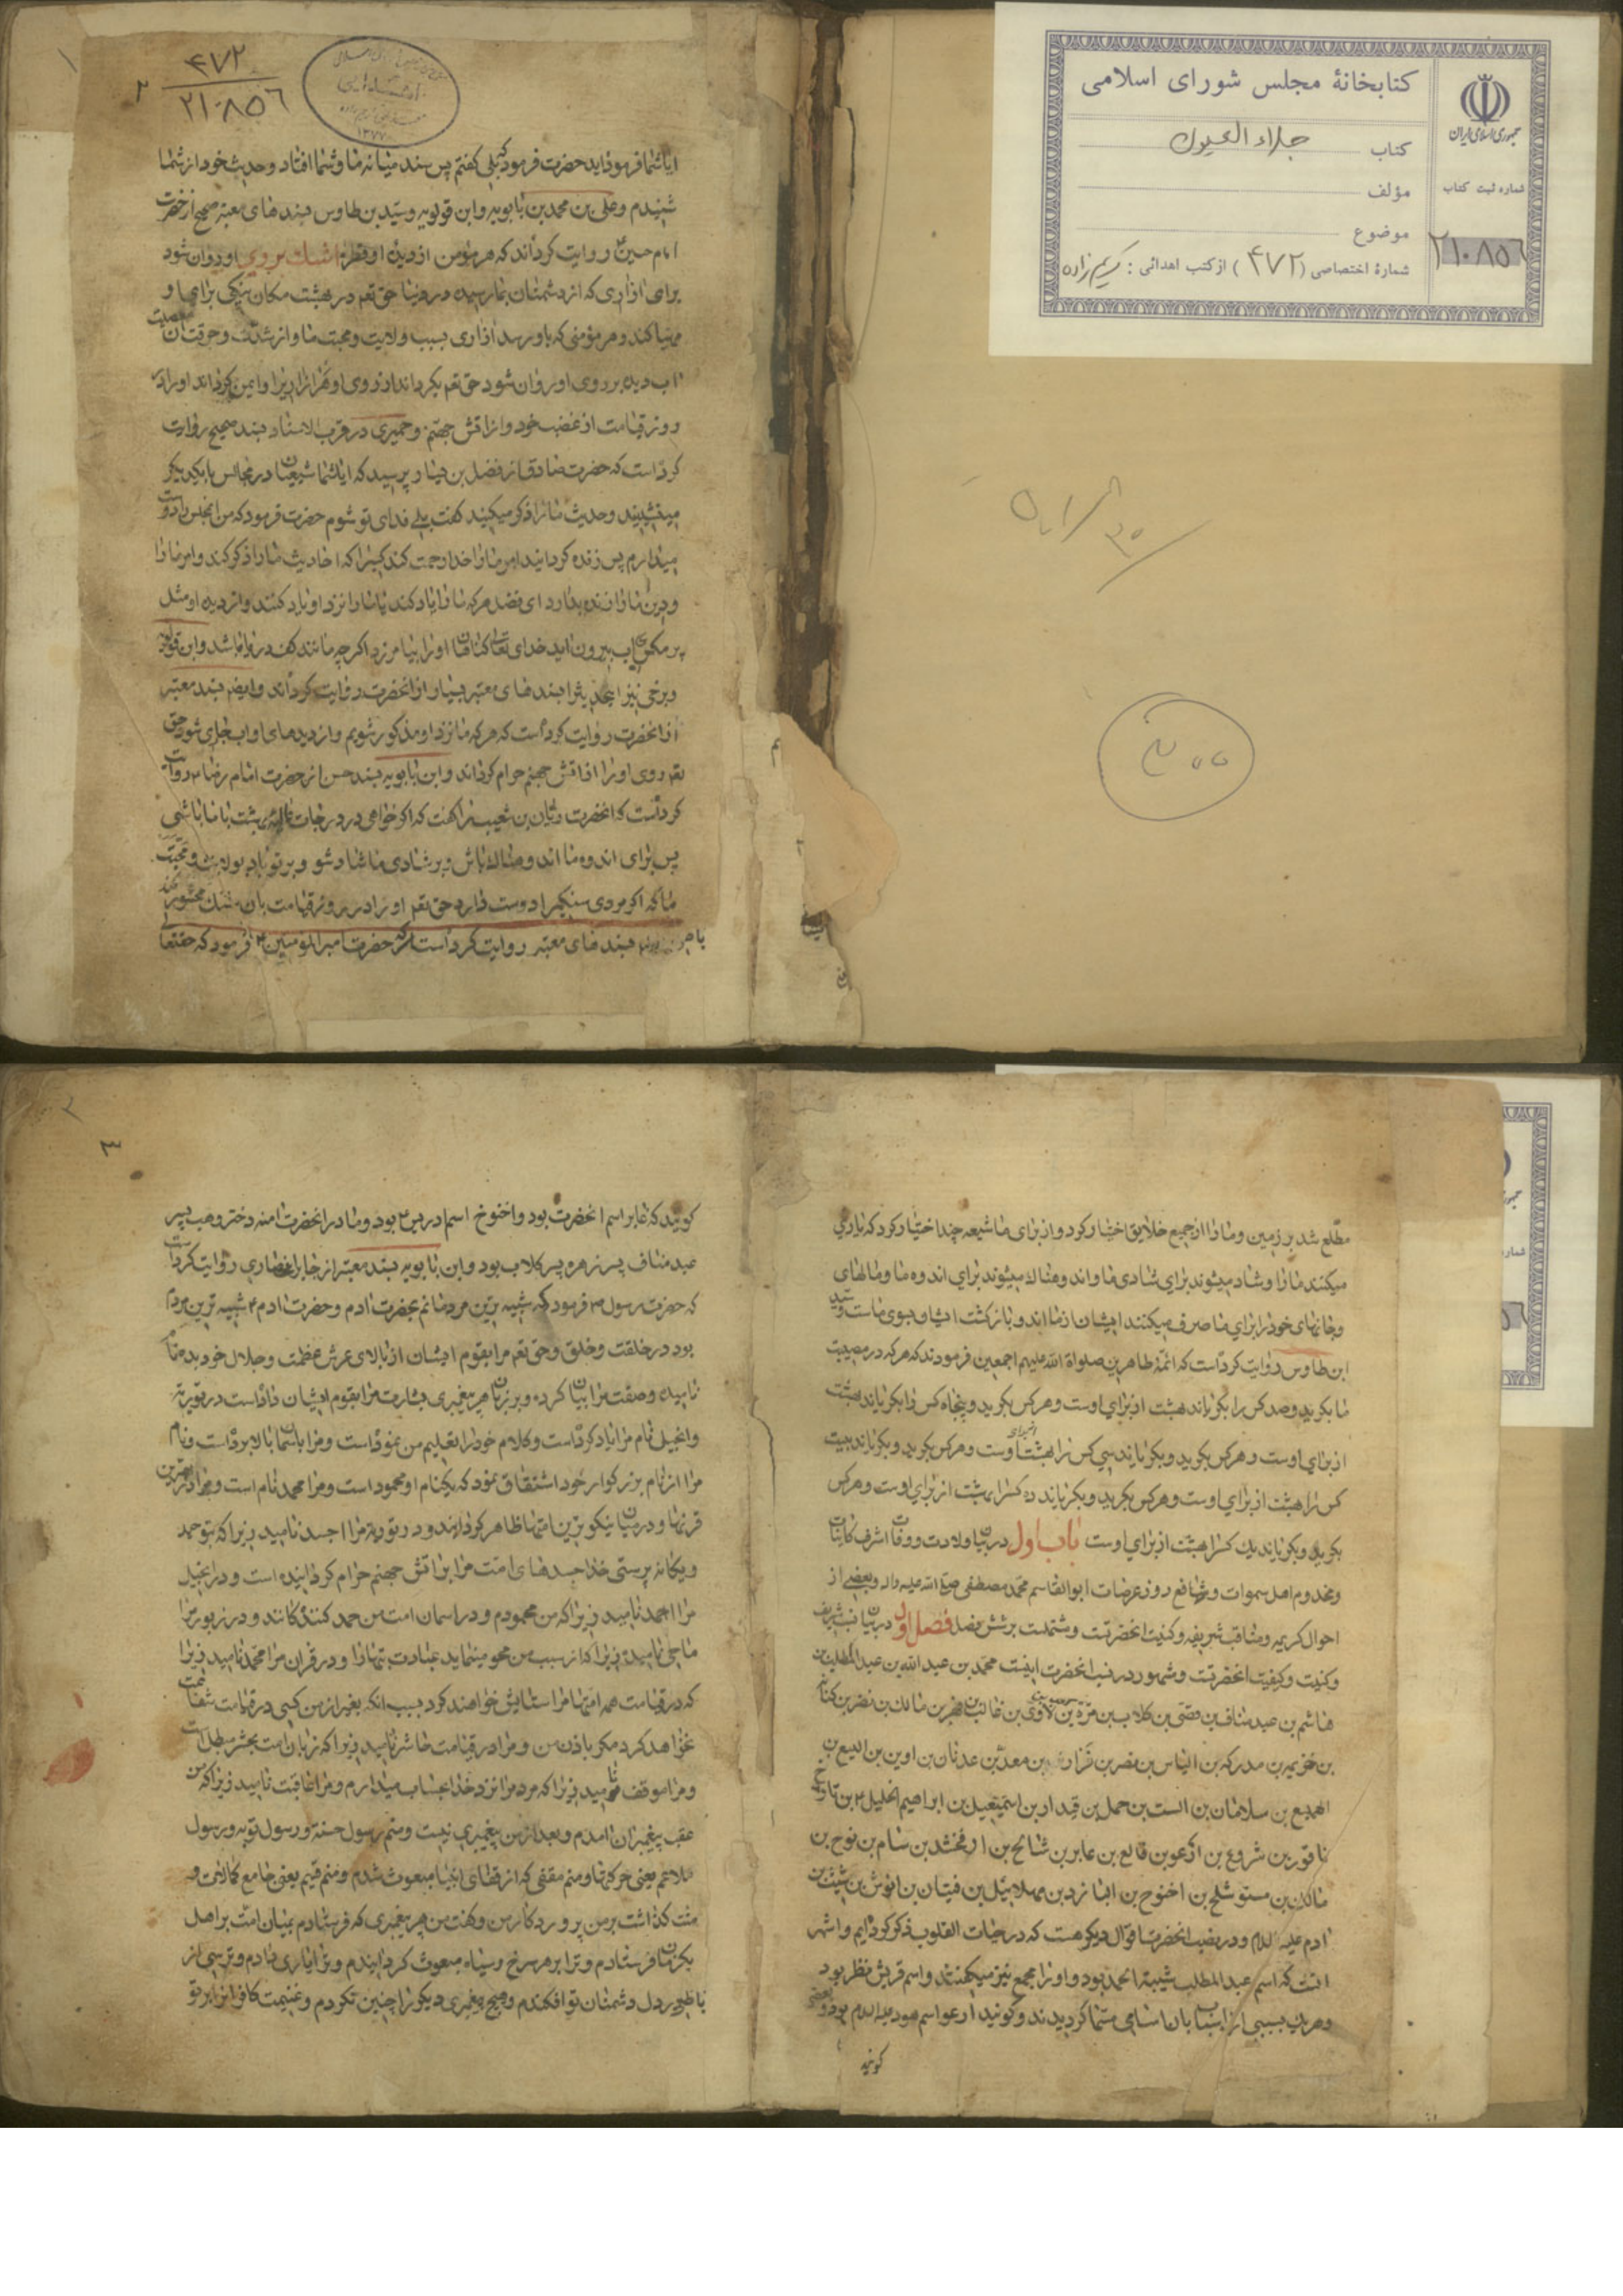 کتابخانهٔ مجلس شورای اسلامی
کتاب جلاء العیون
مؤلف
موضوع
شمارهٔ اختصاصی (۴۷۲) از کتب اهدائی : کریم زاده
جمهوری اسلامی ایران
شماره ثبت کتاب
۲۱۰۸۵۶
۴۷۲
۲۱۰۸۵۶
۱
۲
ایا شما فرموداید حضرت فرمود که بلی گفتم پس سند میانه ما و شما افتاد و حدیث خود از شما
شنیدم و علی بن محمد بن بابویه و ابن قولویه و سید بن طاوس بسندهای معتبر صحیح از حضرت
امام حسین روایت کرده‌اند که هر مؤمن از دیدهٔ او قطره اشک بر روی او روان شود
برای ازاری که از دشمنان بما رسیده در دنیا حق تعه در بهشت مکان نیکی برای او
مهیا کند و هر مؤمنی که باو رسد ازاری بسبب ولایت و محبت ما و از شدت و حرقت ان
اب دیده بر روی او روان شود حق تعه بکرداند از روی او ازارها را و ایمن کرداند او را در
روز قیامت از غضب خود و از اتش جهنم و حمیری در قرب الاسناد بسند صحیح روایت
کرد است که حضرت صادق از فضل بن یسار پرسید که ایا شما شیعیان در مجالس با یکدیکر
مینشینید و حدیث ما را ذکر میکنید کفت بلی فدای تو شوم حضرت فرمود که من ان مجلس را دوست
میدارم پس زنده کردانید امر ما را خدا رحمت کند کسی را که احادیث ما را ذکر کند و امر ما را
و دین ما را زنده بدارد ای فضل هر که ما را یاد کند یا ما را نزد او یاد کنند و از دیده او مثل
پر مکس اب بیرون اید خدای تعالی کناهان او را بیامرزد اکر چه مانند کف دریا باشد و ابن قولویه
و برخی نیز این حدیث را بسندهای معتبر بسیار از انحضرت روایت کرده‌اند و ایضا بسند معتبر
از انحضرت روایت کرد است که هر که ما نزد او مذکور شویم و از دیدهای او اب جاری شود حق
تعه روی او را بر اتش جهنم حرام کرداند و ابن بابویه بسند حسن از حضرت امام رضا روایت
کرد است که انحضرت بریان بن شبیب را کفت که اکر خواهی در درجات عالیه بهشت با ما باشی
پس برای اندوه ما اندوهناک باش و بر شادی ما شاد شو و بر تو باد بولایت و محبت
ما که اکر مردی سنکی را دوست دارد حق تعه او را در روز قیامت بان سنک محشور کند
بسندهای معتبر روایت کرد است که حضرت امیرالمؤمنین فرمود که حقتعالی
مطلع شد بر زمین و ما را از جمیع خلایق اختیار کرد و از برای ما شیعه چند اختیار کرد که یاری
میکنند ما را و شاد میشوند برای شادی ما و اندوهناک میشوند برای اندوه ما و مالهای
و جانهای خود را برای ما صرف میکنند ایشان از ما اند و بازکشت ایشان بسوی ماست و سید
ابن طاوس روایت کرد است که ائمهٔ طاهرین صلواة الله علیهم اجمعین فرمودند که هر که در مصیبت
ما بکرید و صد کس را بکریاند بهشت از برای اوست و هر کس بکرید و پنجاه کس را بکریاند بهشت
از برای اوست و هر کس بکرید و بکریاند سی کس را بهشت از برای اوست و هر کس بکرید و بکریاند بیست
کس را بهشت از برای اوست و هر کس بکرید و بکریاند ده کس را بهشت از برای اوست و هر کس
بکرید و بکریاند یک کس را بهشت از برای اوست باب اول در بیان ولادت و وفات اشرف کاینات
و مخدوم اهل سموات و شافع روز عرصات ابوالقاسم محمد مصطفی صلی الله علیه واله و بعضی از
احوال کریمه و مناقب شریفه و کنیت انحضرتست و مشتملست بر شش فصل فصل اول در بیان نسب شریف
و کنیت و کیفیت انحضرتست و مشهور در نسب انحضرت اینست محمد بن عبدالله بن عبدالمطلب بن
هاشم بن عبد مناف بن قصی بن کلاب بن مرة بن لاوی بن غالب بن فهر بن مالک بن نضر بن کنانه
بن خزیمه بن مدرکه بن الیاس بن مضر بن نزار بن معد بن عدنان بن اوبن بن الیسع بن
الهمیع بن سلامان بن النبت بن حمل بن قیدار بن اسمعیل بن ابراهیم الخلیل بن تارخ
ناقور بن شروغ بن ارغو بن فالع بن عابر بن شالخ بن ارفخشد بن سام بن نوح بن
مالک بن متوشلخ بن اخنوخ بن الیارد بن مهلائیل بن قینان بن انوش بن شیث بن
ادم علیه السلام و در نسب انحضرت اقوال دیکر هست که در حیات القلوب ذکر کرده‌ایم و اشهر
انست که اسم عبدالمطلب شیبة الحمد بود و او را مجمع نیز میکفتند و اسم قریش نضر بود
و هر یک بسببی از اسباب بان اسامی مسما کردیدند و کویند ارغو اسم هود علیه السلام بود و بعضی
کویند
۳
کویند که عابر اسم انحضرت بود و اخنوخ اسم ادریس بود و مادر انحضرت امنه دختر وهب پسر
عبد مناف پسر زهره پسر کلاب بود و ابن بابویه بسند معتبر از جابر انصاری روایت کرد است
که حضرت رسول فرمود که شبیه ترین مردمانم بحضرت ادم و حضرت ادم شبیه ترین مردم
بود در خلقت و خلق و حق تعه مرا بقوم ایشان از بالای عرش عظمت و جلال خود بده نام
نامیده و صفت مرا بیان کرده و بر زبان هر پیغمبری بشارت مرا بقوم ایشان داد است در توریة
و انجیل نام مرا یاد کرد است و کلام خود را تعلیم من نمود است و مرا باسمان بالا برد است و نام
مرا از نام بزرکوار خود اشتقاق نمود که یکنام او محمود است و مرا محمد نام است و مرا در بهترین
قرنها و در میان نیکوترین امتها ظاهر کردانید و در توریة مرا احید نامید زیرا که بتوحید
و یکانه پرستی خدا جسدهای امت مرا بر اتش جهنم حرام کردانیده است و در انجیل
مرا احمد نامید زیرا که من محمودم در اسمان امت من حمد کنندکانند و در زبور مرا
ماحی نامیده زیرا که از سبب من محو مینماید عبادت بتها را و در قران مرا محمد نامید زیرا
که در قیامت همه امتها مرا ستایش خواهند کرد بسبب انکه بغیر از من کسی در قیامت شفاعت
نخواهد کرد مکر باذن من و مرا در قیامت حاشر نامید زیرا که زمان امت من بحشر متصل است
و مرا موقف نامید زیرا که مردم را نزد خدا بحساب میدارم و مرا عاقب نامید زیرا که من
عقب پیغمبران امدم و بعد از من پیغمبری نیست و منم رسول رحمت و رسول توبه و رسول
ملاحم یعنی جنکها و منم مقفی که از قفای انبیا مبعوث شدم و منم قیم یعنی جامع کمالات و
منت کذاشت بر من پروردکار من و کفت من هر پیغمبری که فرستادم بزبان امت بر اهل
یکزبان فرستادم و ترا بر هر سرخ و سیاه مبعوث کردانیدم و ترا یاری دادم و ترسی از
تو در دل دشمنان تو افکندم و هیچ پیغمبری دیکر را چنین نکردم و غنیمت کافرانرا بر تو